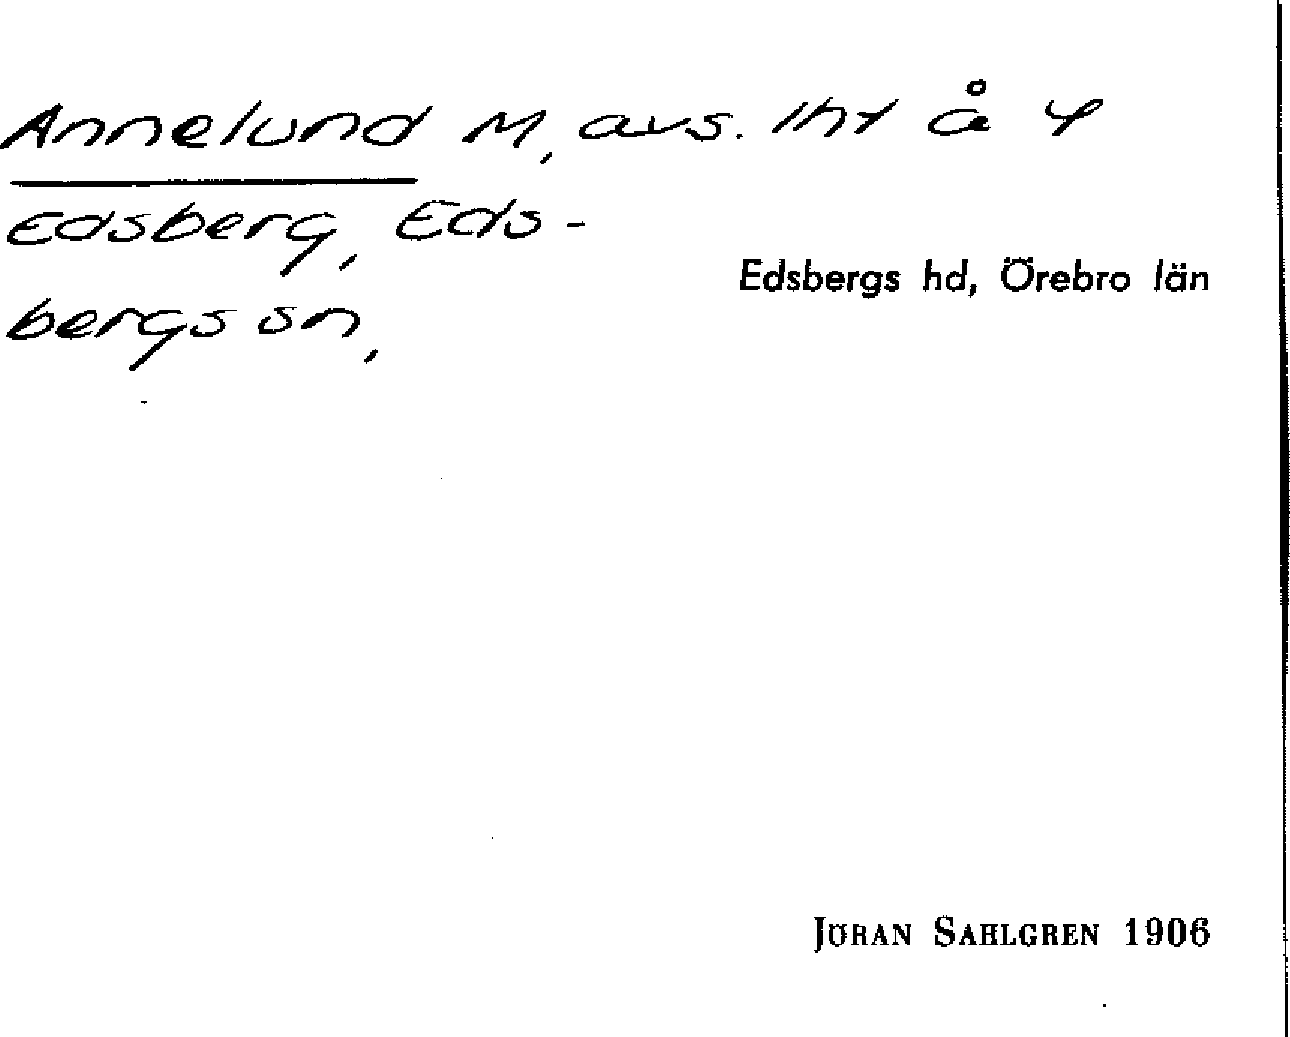 Annelund M, avs. lht å 4
Edsberg, Eds-
bergs sn,
Edsbergs hd, Örebro län
JÖRAN SAHLGREN 1906